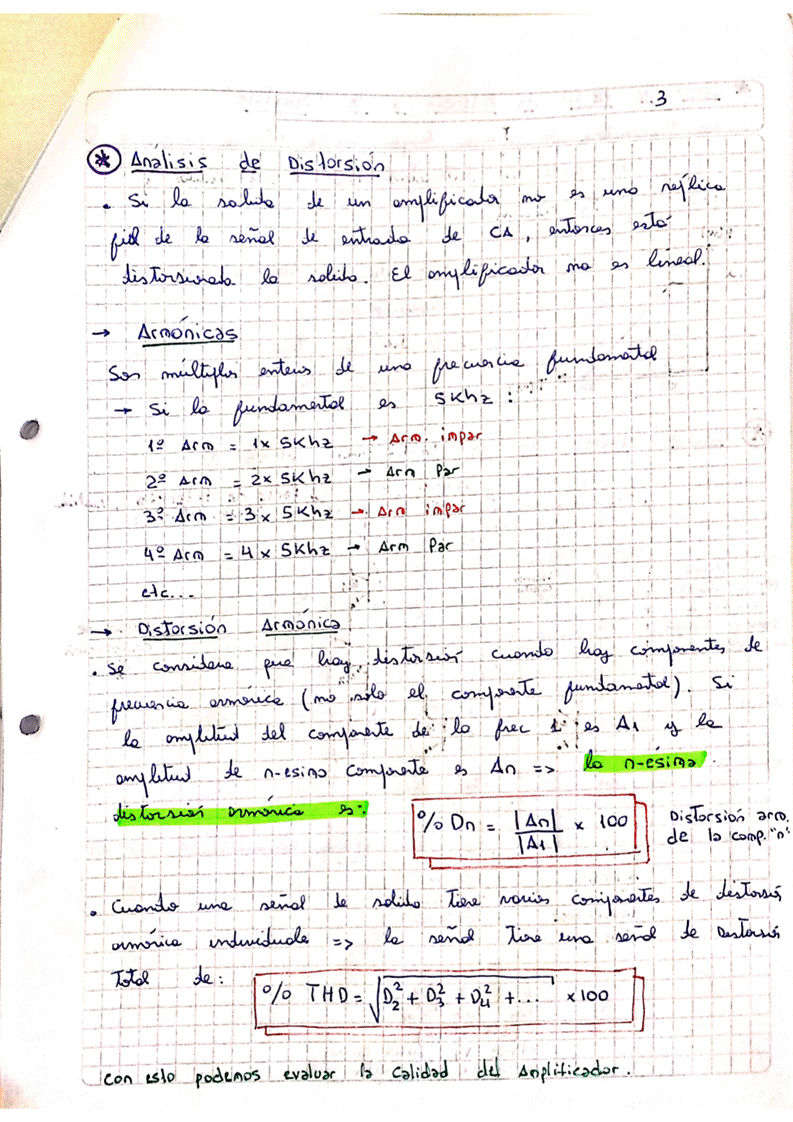 3
* Análisis de Distorsión
• Si la salida de un amplificador no es una réplica
fiel de la señal de entrada de CA, entonces está
distorsionada la salida. El amplificador no es lineal.
→ Armónicas
Son múltiplos enteros de una frecuencia fundamental
→ Si la fundamental es 5Khz :
1º Arm = 1x 5Khz → Arm. impar
2º Arm = 2x 5Khz → Arm Par
3º Arm = 3 x 5Khz → Arm impar
4º Arm = 4 x 5Khz → Arm Par
etc...
→ Distorsión Armónica
• Se considera que hay distorsión cuando hay componentes de
frecuencia armónica (no sólo el componente fundamental). Si
la amplitud del componente de la frec 1 es A1 y la
amplitud de n-esima componente es An => la n-ésima
distorsión armónica es:
% Dn = |An| / |A1| x 100
Distorsión arm.
de la comp. "n"
• Cuando una señal de salida tiene varios componentes de distorsión
armónica individuale => la señal tiene una señal de Distorsión
Total de:
% THD = √(D₂² + D₃² + D₄² + ...) x 100
con esto podemos evaluar la calidad del Amplificador.